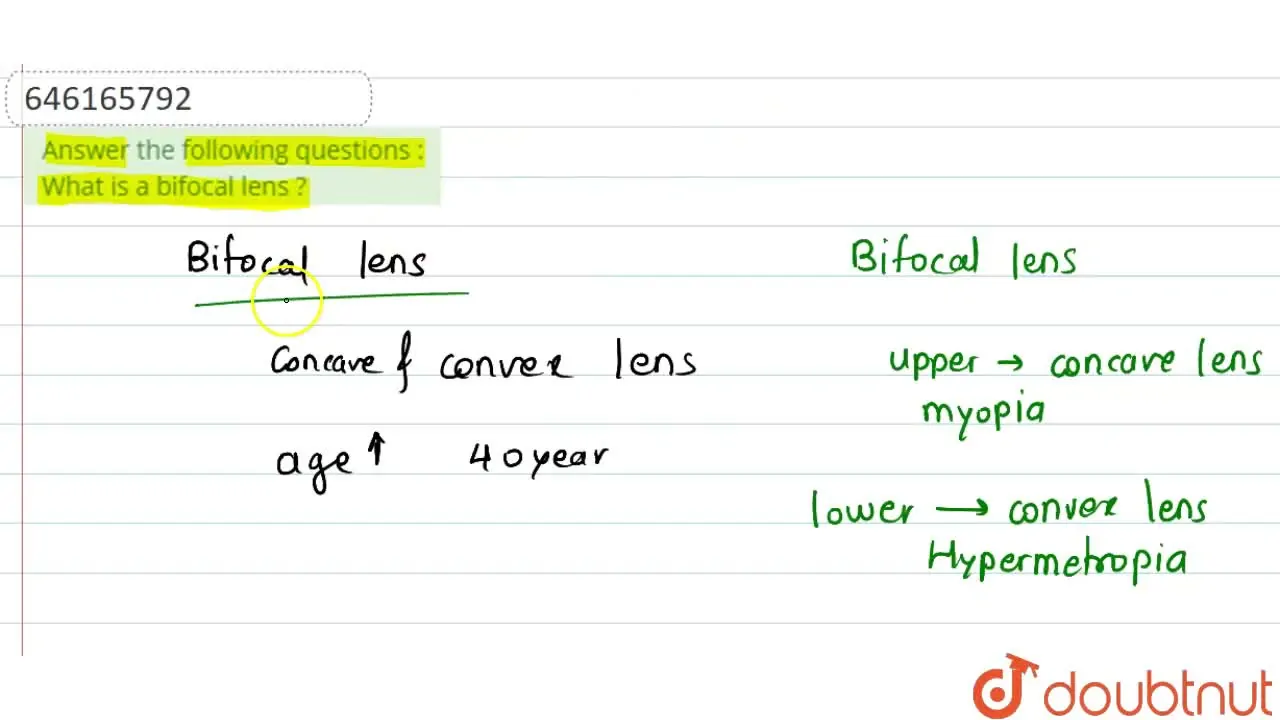 646165792
Answer the following questions :
What is a bifocal lens ?
Bifocal lens
Concave & convex lens
age ↑ 40 year
Bifocal lens
upper → concave lens
myopia
lower → convex lens
Hypermetropia
doubtnut